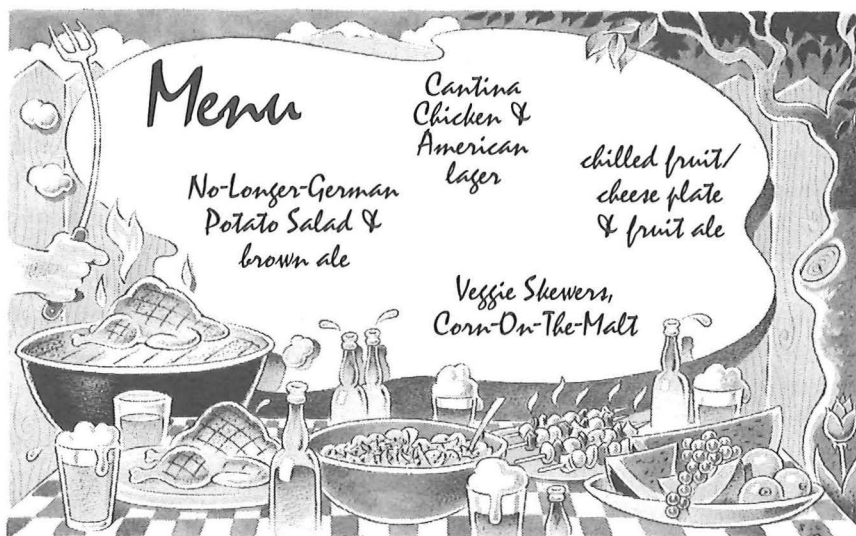 Menu
No-Longer-German
Potato Salad &
brown ale
Cantina
Chicken &
American
lager
chilled fruit/
cheese plate
& fruit ale
Veggie Skewers,
Corn-On-The-Malt